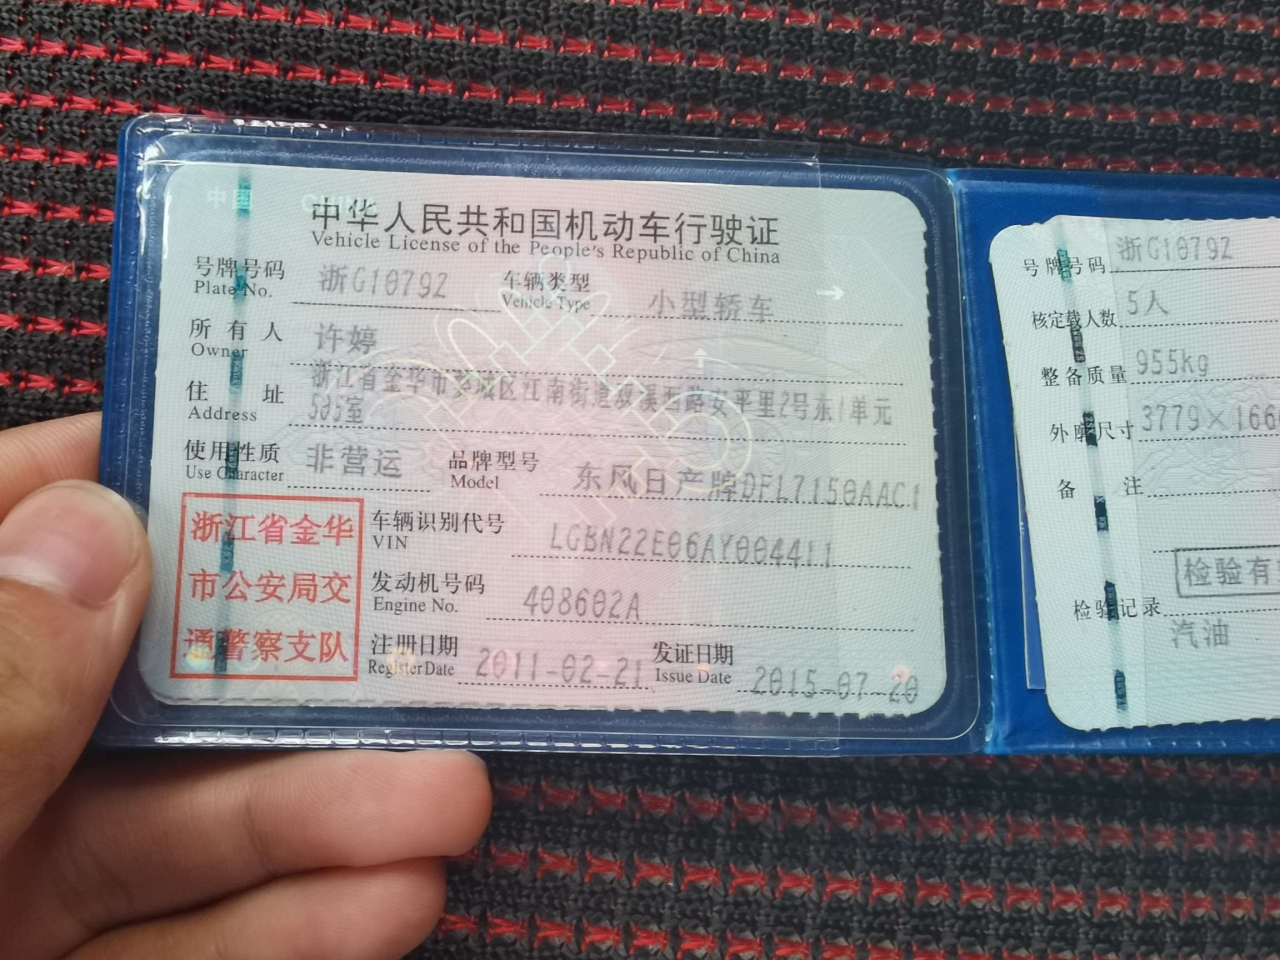 中国 CHINA
中华人民共和国机动车行驶证
Vehicle License of the People's Republic of China
号牌号码 浙G1079Z 车辆类型 小型轿车
Plate No. Vehicle Type
所有人 许婷
Owner
住址 浙江省金华市婺城区江南街道双溪西路安平里2号东1单元
Address 505室
使用性质 非营运 品牌型号 东风日产牌DFL7150AAC1
Use Character Model
浙江省金华
市公安局交
通警察支队
车辆识别代号 LGBN22E06AY004411
VIN
发动机号码 408602A
Engine No.
注册日期 2011-02-21 发证日期 2015-07-20
Register Date Issue Date
号牌号码 浙G1079Z
核定载人数 5人
整备质量 955kg
外廓尺寸 3779×166
备注
检验有
检验记录
汽油